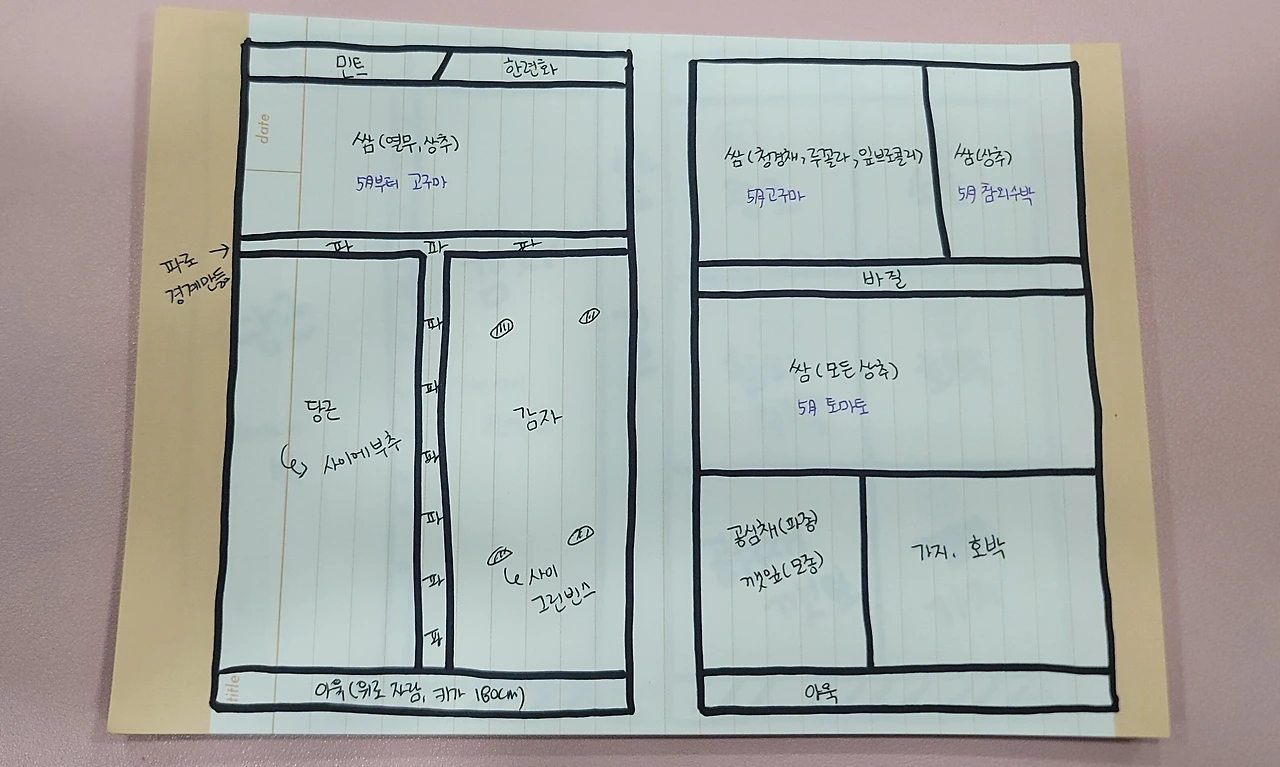 민트
한련화
date
쌈(열무,상추)
5月부터 고구마
파 파 파
파로 →
경계만듦
파
파
파
파
파
파
당근
사이에부추
감자
사이
그린빈스
title
아욱(위로 자람, 키가 180cm)
쌈(청경채,루꼴라,잎브로콜리)
5月고구마
쌈(상추)
5月 참외수박
바질
쌈(모든상추)
5月 토마토
공심채(파종)
깻잎(모종)
가지. 호박
아욱